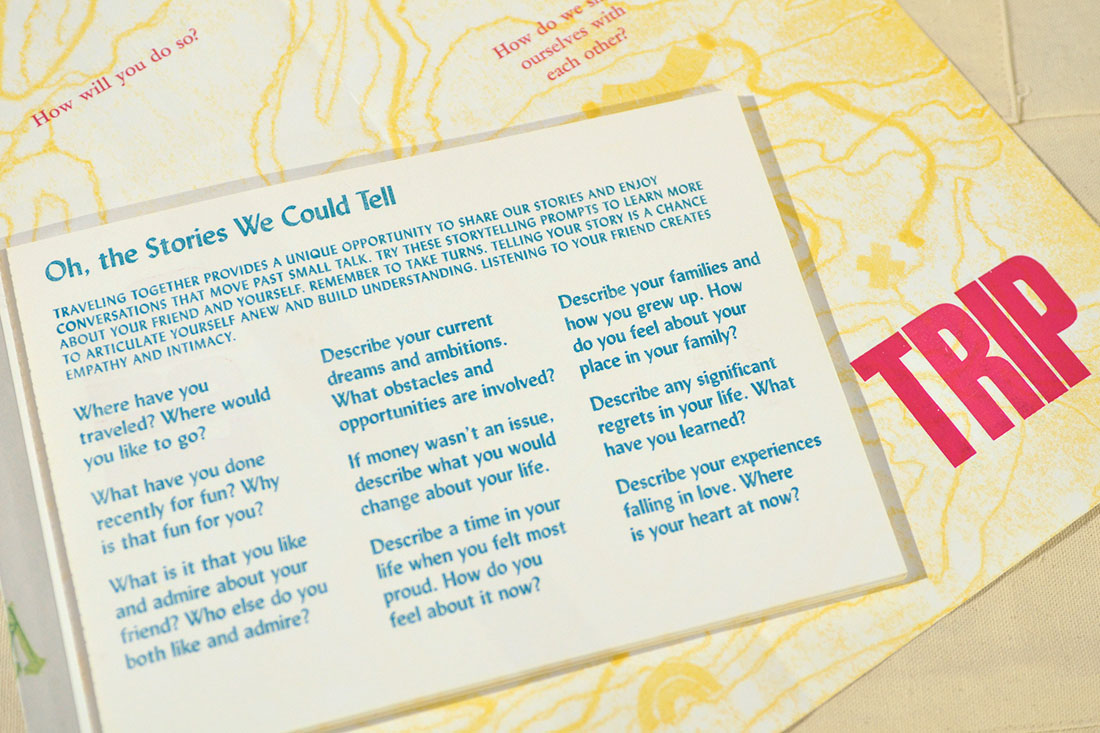 How will you do so?
How do we
ourselves with
each other?
Oh, the Stories We Could Tell
TRAVELING TOGETHER PROVIDES A UNIQUE OPPORTUNITY TO SHARE OUR STORIES AND ENJOY
CONVERSATIONS THAT MOVE PAST SMALL TALK. TRY THESE STORYTELLING PROMPTS TO LEARN MORE
ABOUT YOUR FRIEND AND YOURSELF. REMEMBER TO TAKE TURNS. TELLING YOUR STORY IS A CHANCE
TO ARTICULATE YOURSELF ANEW AND BUILD UNDERSTANDING. LISTENING TO YOUR FRIEND CREATES
EMPATHY AND INTIMACY.
Where have you
traveled? Where would
you like to go?
What have you done
recently for fun? Why
is that fun for you?
What is it that you like
and admire about your
friend? Who else do you
both like and admire?
Describe your current
dreams and ambitions.
What obstacles and
opportunities are involved?
If money wasn't an issue,
describe what you would
change about your life.
Describe a time in your
life when you felt most
proud. How do you
feel about it now?
Describe your families and
how you grew up. How
do you feel about your
place in your family?
Describe any significant
regrets in your life. What
have you learned?
Describe your experiences
falling in love. Where
is your heart at now?
TRIP